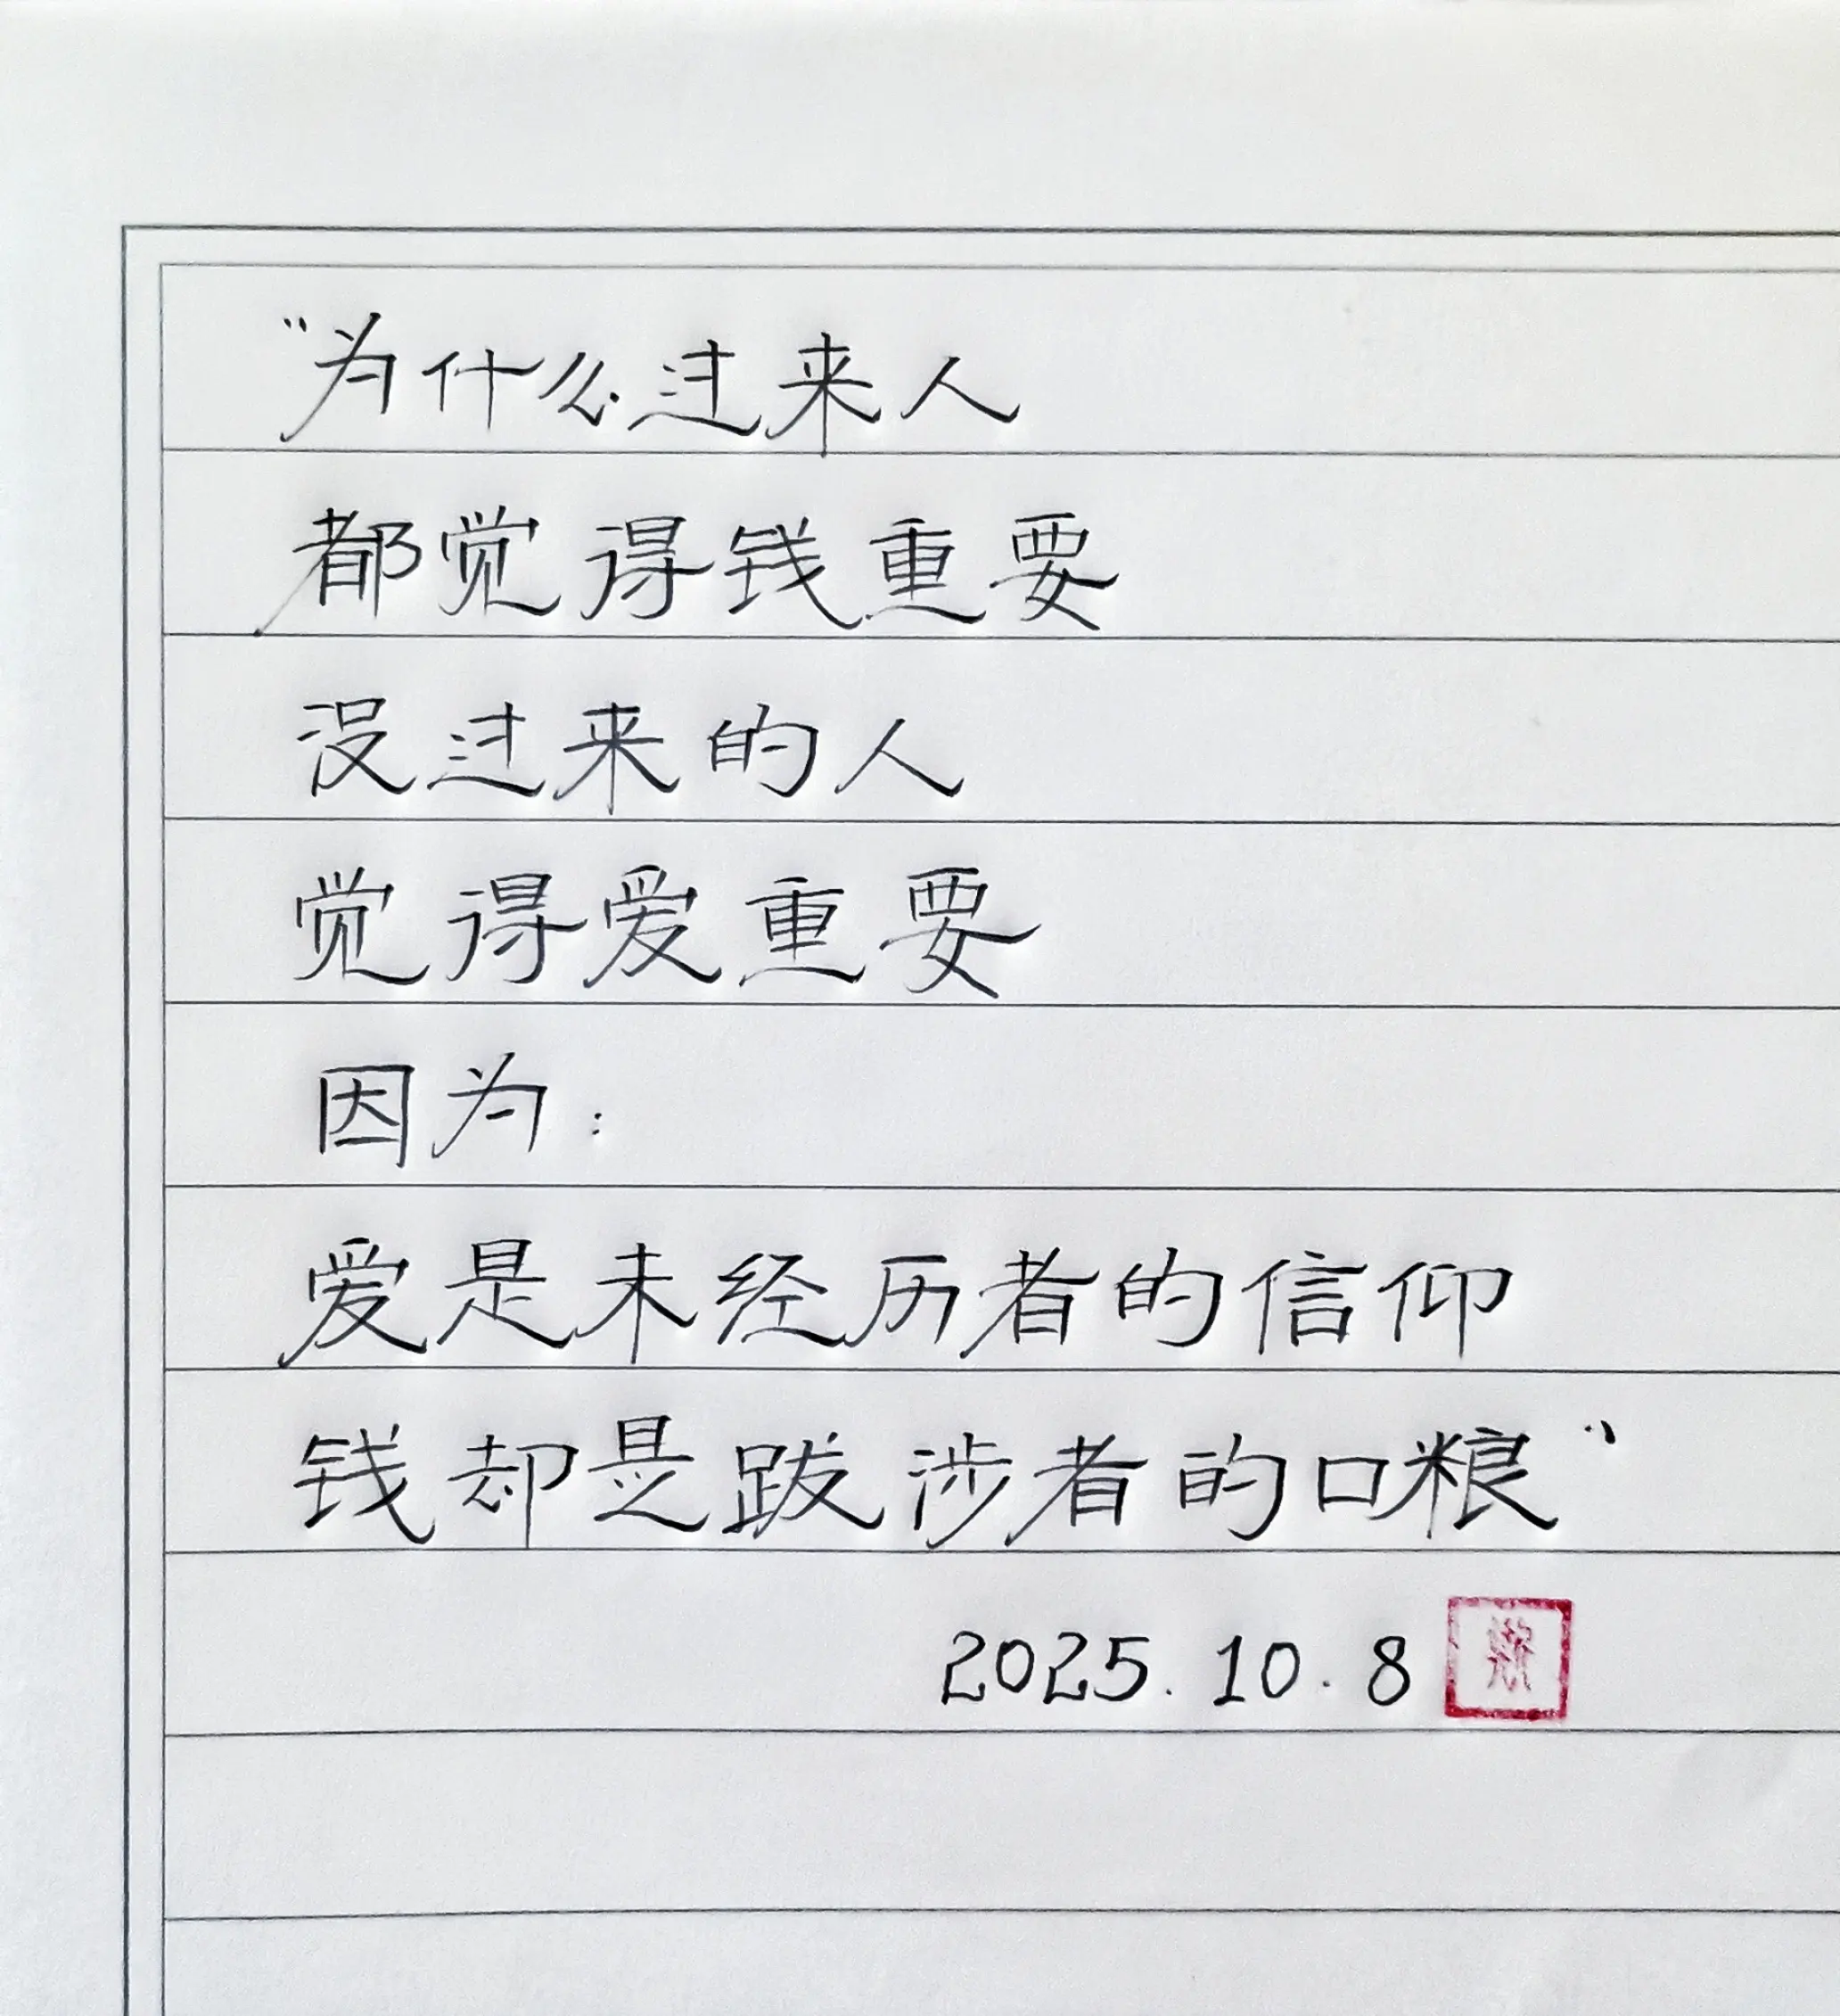 “为什么过来人
都觉得钱重要
没过来的人
觉得爱重要
因为：
爱是未经历者的信仰
钱却是跋涉者的口粮”
2025.10.8